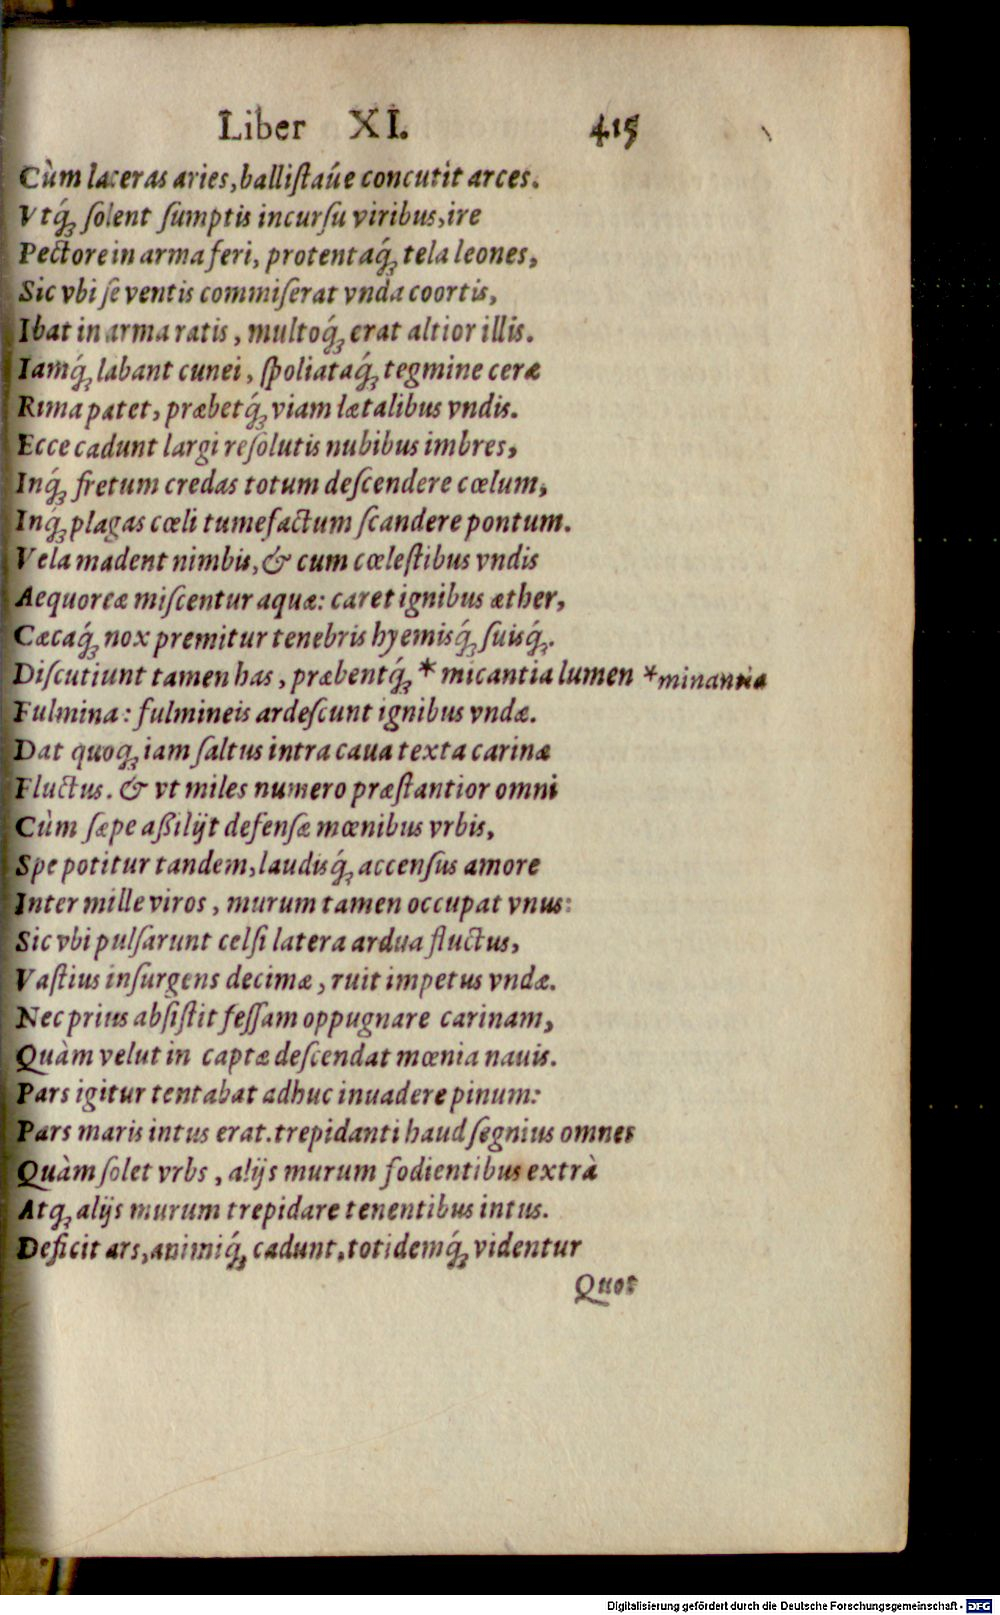 Liber XI. 415
Cùm laceras aries, balliſtaúe concutit arces.
Vtq́; ſolent ſumptis incurſu viribus, ire
Pectore in arma feri, protentaq́; tela leones,
Sic vbi ſe ventis commiſerat vnda coortis,
Ibat in arma ratis, multoq́; erat altior illis.
Iamq́; labant cunei, ſpoliataq́; tegmine ceræ
Rima patet, præbetq́; viam lætalibus vndis.
Ecce cadunt largi reſolutis nubibus imbres,
Inq́; fretum credas totum deſcendere cœlum,
Inq́; plagas cœli tumefactum ſcandere pontum.
Vela madent nimbis, & cum cœleſtibus vndis
Aequoreæ miſcentur aquæ: caret ignibus æther,
Cæcaq́; nox premitur tenebris hyemisq́; ſuisq́;.
Diſcutiunt tamen has, præbentq́; * micantia lumen *minantia
Fulmina: fulmineis ardeſcunt ignibus vndæ.
Dat quoq; iam ſaltus intra caua texta carinæ
Fluctus. & vt miles numero præſtantior omni
Cùm ſæpe aßilijt defenſæ mœnibus vrbis,
Spe potitur tandem, laudisq́; accenſus amore
Inter mille viros, murum tamen occupat vnus:
Sic vbi pulſarunt celſi latera ardua fluctus,
Vaſtius inſurgens decimæ, ruit impetus vndæ.
Nec prius abſiſtit feſſam oppugnare carinam,
Quàm velut in captæ deſcendat mœnia nauis.
Pars igitur tentabat adhuc inuadere pinum:
Pars maris intus erat. trepidant haud ſegnius omnes
Quàm ſolet vrbs, alijs murum fodientibus extrà
Atq; alijs murum trepidare tenentibus intus.
Deficit ars, animiq́; cadunt. totidemq́; videntur
Quot
Digitalisierung gefördert durch die Deutsche Forschungsgemeinschaft - DFG